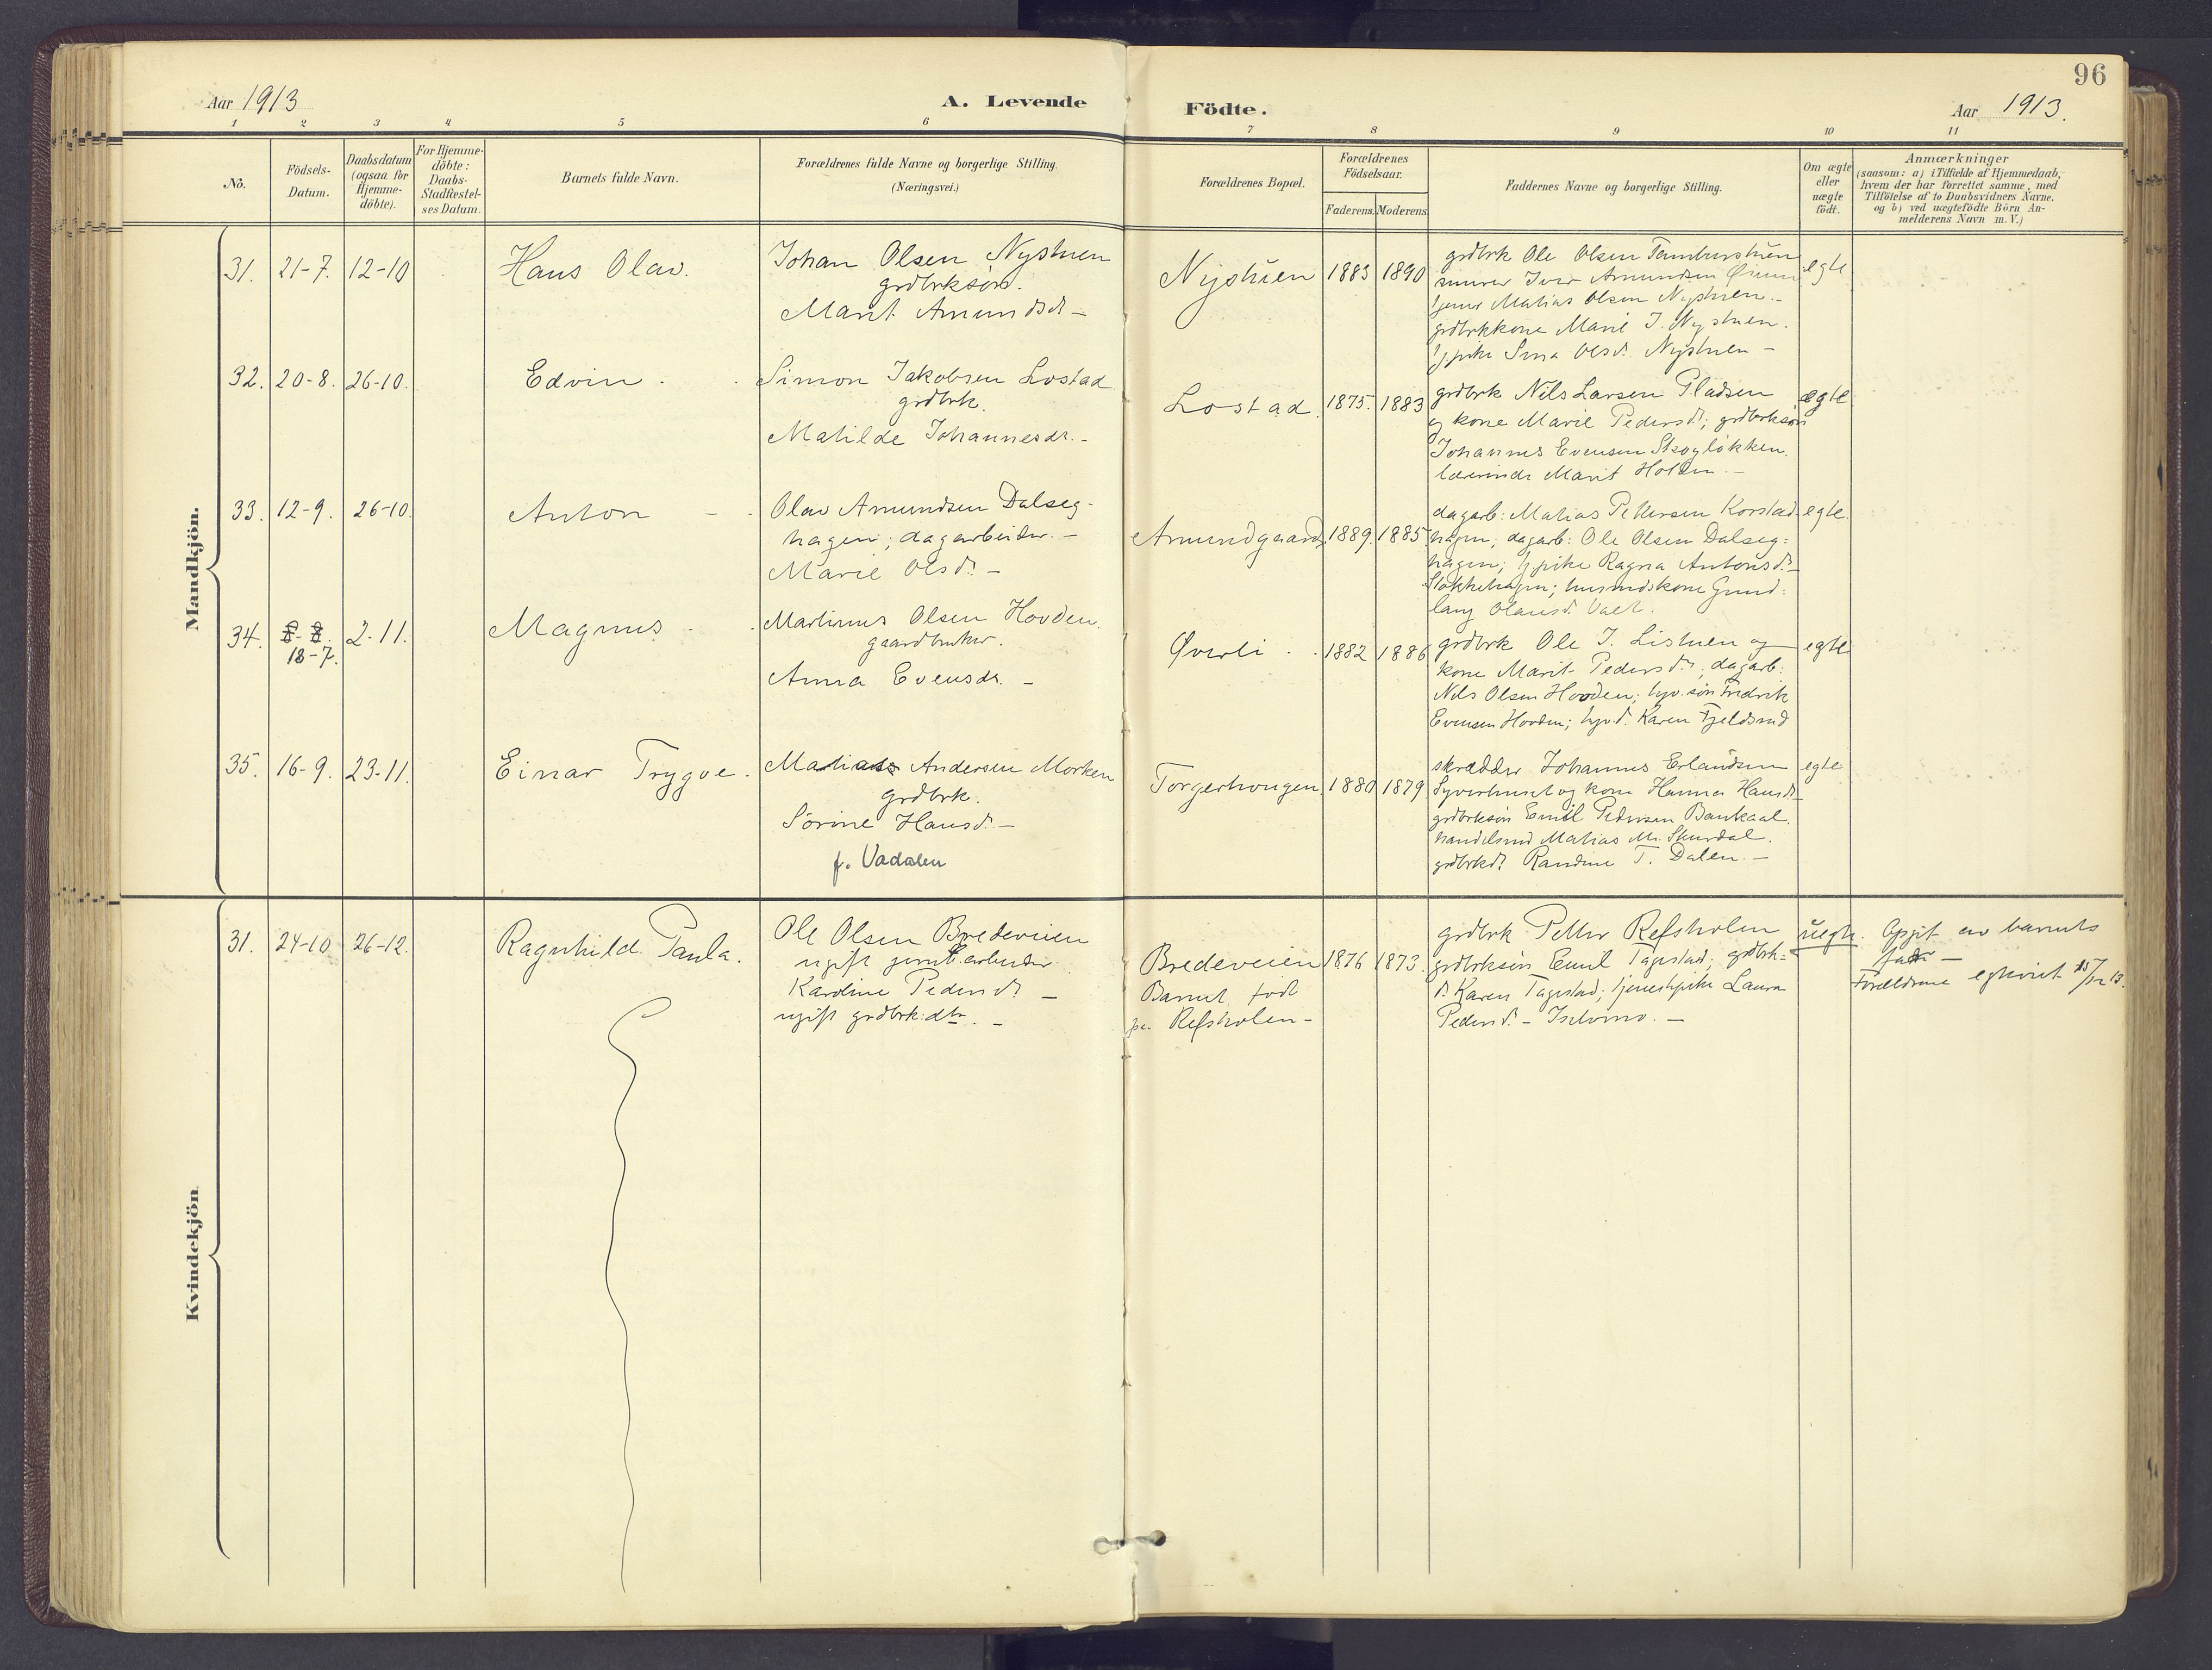 96
Aar 1913
A. Levende Födte.
Aar 1913.
1 2 3 4 5 6 7 8 9 10 11
No.
Födsels-
Datum.
Daabsdatum
(ogsaa for
Hjemme-
döbte).
For Hjemme-
döbte:
Daabs-
Stadfæstel-
ses Datum.
Barnets fulde Navn.
Forældrenes fulde Navne og borgerlige Stilling.
(Næringsvei.)
Forældrenes Bopæl.
Forældrenes
Födselsaar.
Faderens. Moderens.
Faddernes Navne og borgerlige Stilling.
Om ægte
eller
uægte
födt.
Anmærkninger
(saasom: a) i Tilfælde af Hjemmedaab,
hvem der har forrettet samme, med
Tilföielse af to Daabsvidners Navne.
og b) ved uægtefödte Börn An-
melderens Navn m. V.)
Mandkjön.
31. 21-7. 12-10
Hans Olav.
Johan Olsen Nystuen
grdbrksøn.
Marit Amundsdr –
Nystuen 1883 1890
grdbrk Ole Olsen Tamburstuen
murer Iver Amundsen
Matias Olsen Nystuen. –
grdbrkkone Marie J. Nystuen.
Olsd. Nystuen –
egte
32. 20-8. 26-10.
Edvin.
Simon Jakobsen Lostad
grdbrk.
Matilde Johannesdr. –
Lostad. 1875. 1883
grdbrk Nils Larsen Pladsen
og kone Marie Pedersd.; grdbrksøn
Johannes Evensen Skogløkken.
lærerinde Marit Holen. –
ægte
33. 12-9. 26-10.
Anton –
Olav Amundsen Dalseg-
hagen; dagarbeider. –
Marie Olsd. –
Amundgaard, 1889. 1885
dagarb: Matias Pettersen Korstad-
hagen; dagarb: Ole Olsen Dalseg=
hagen; hjpike Ragna Antonsd. –
Stokkehagen; husmdskone Gund=
laug Olausd.
egte.
34. 8-8. 2-11.
18-7.
Magnus –
Martinus Olsen Hovden.
gaardbruker.
Anna Evensdr. –
Øverli. 1882 1886
grdbrk Ole J. Listuen og
kone Marit Pedersd.; dagarb.
Nils Olsen Hovden; hjv. søn Fredrik
Evensen Hovden; hjv.d. Karen Fjeldsend
egte
35. 16-9. 23-11.
Einar Trygve.
Matias Andersen Morken
grdbrk.
Sörine Hansd. –
f. Vadalen
Torgerhougen 1880 1879
skrædder Johannes Erlandsen
Syverhuset og kone Hanna Hansd. –
grdbrksøn Emil Pedersen Bankaal.
handelsmd Matias M. Skurdal.
grdbrkd. Randine T. Dalen. –
egte
Kvindekjön
31. 24-10. 26-12.
Ragnhild Paula.
Ole Olsen Bredeveien
ugift jernb.arbeider
Karoline Pedersd. –
ugift grdbrk:dtr. –
Bredeveien 1876 1873.
Barnet født
paa Refsholen –
grdbrk Petter Refsholen
grdbrksøn Emil Tagestad; grdbrk=
d. Karen Tagestad; tjenestpike Laura
Pedersd. –
uegte.
Opgit av barnets
fader –
Forældrene egteviet 15/12 13.